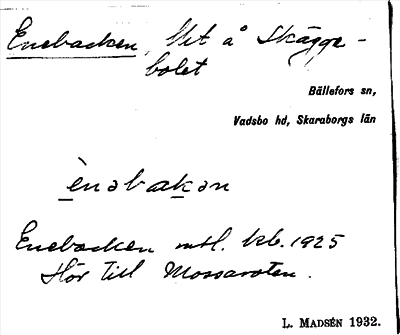 Enebacken, lht å Skägge-
bolet
Bällefors sn,
Vadsbo hd, Skaraborgs län
ènəbakən
Enebacken mtl. kb. 1925
Hör till Mossaroten.
L. MADSÉN 1932.